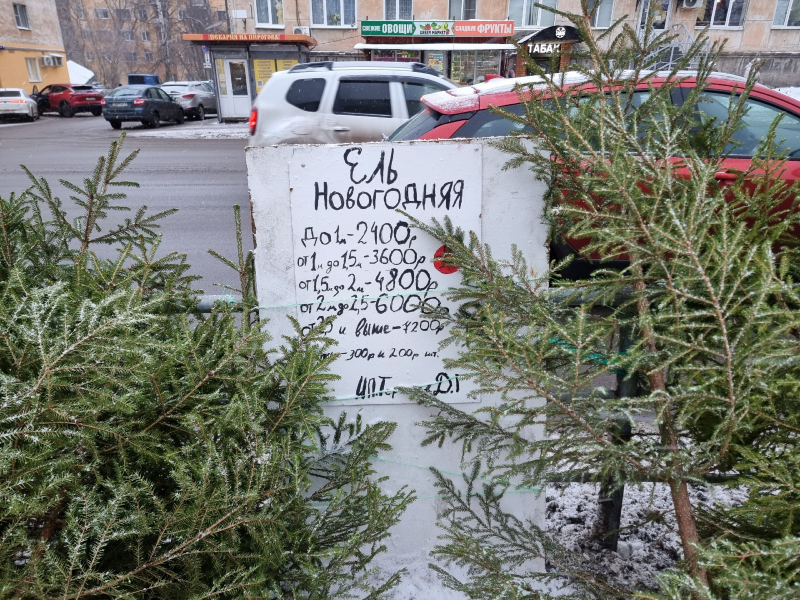 ПЕКАРНЯ НА ПИРОГОВА
СВЕЖИЕ ОВОЩИ
GREEN МАРКЕТ
СЛАДКИЕ ФРУКТЫ
ТАБАК
ЕЛЬ
НОВОГОДНЯЯ
До 1м-2400р
от 1м до 1,5м-3600р
от 1,5 до 2м-4800р
от 2м до 2,5-6000р
от и выше-7200р
-300р и 200р шт.
ИП. Д.Г